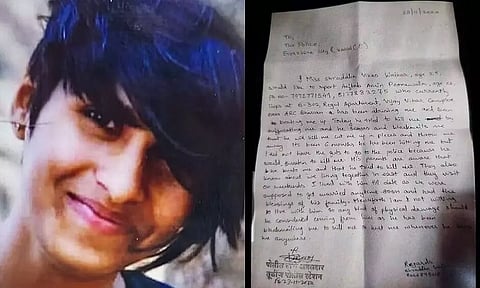 To,
The Police,
I Miss Shraddha Vikas Walkar, age 25,
would like to report Aftab Amin Poonawala, age 26
who currently
lives at B-302, Regal Apartment, Vijay Vihar Complex
near has been abusing me and
beating me up. Today he tried to kill me by
suffocating me and he scares and blackmails me
that he will kill me, cut me up in pieces and throw me
away. Its been 6 months he has been hitting me but
I did not have the guts to go to the police because he
would threaten to kill me. His parents are aware that
he beats me and that he tried to kill me. They also
know about we living together and they visit
on weekends. I lived with him till date as we were
supposed to get married anytime soon and had the
blessings of his family. Henceforth I am not willing
to live with him so any kind of physical damage should
be considered coming from him as he has been
blackmailing me to kill me or hurt me whenever he sees
me anywhere.
Regards